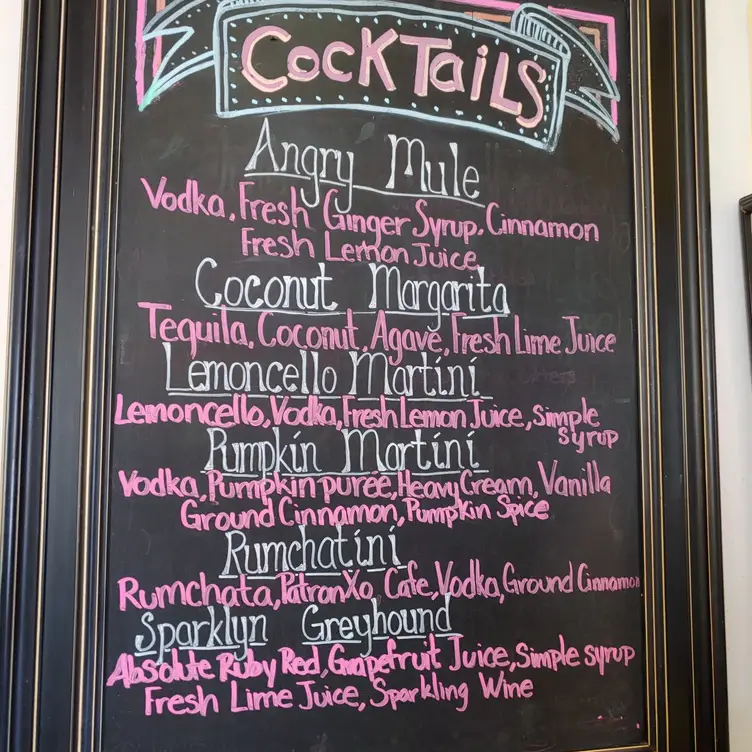 COCKTAILS
Angry Mule
Vodka, Fresh Ginger Syrup, Cinnamon
Fresh Lemon Juice
Coconut Margarita
Tequila, Coconut, Agave, Fresh Lime Juice
Lemoncello Martini
Lemoncello, Vodka, Fresh Lemon Juice, Simple
Syrup
Pumpkin Martini
Vodka, Pumpkin purée, Heavy Cream, Vanilla
Ground Cinnamon, Pumpkin Spice
Rumchatini
Rumchata, Patron Xo Cafe, Vodka, Ground Cinnamon
Sparklyn Greyhound
Absolute Ruby Red, Grapefruit Juice, Simple syrup
Fresh Lime Juice, Sparkling Wine